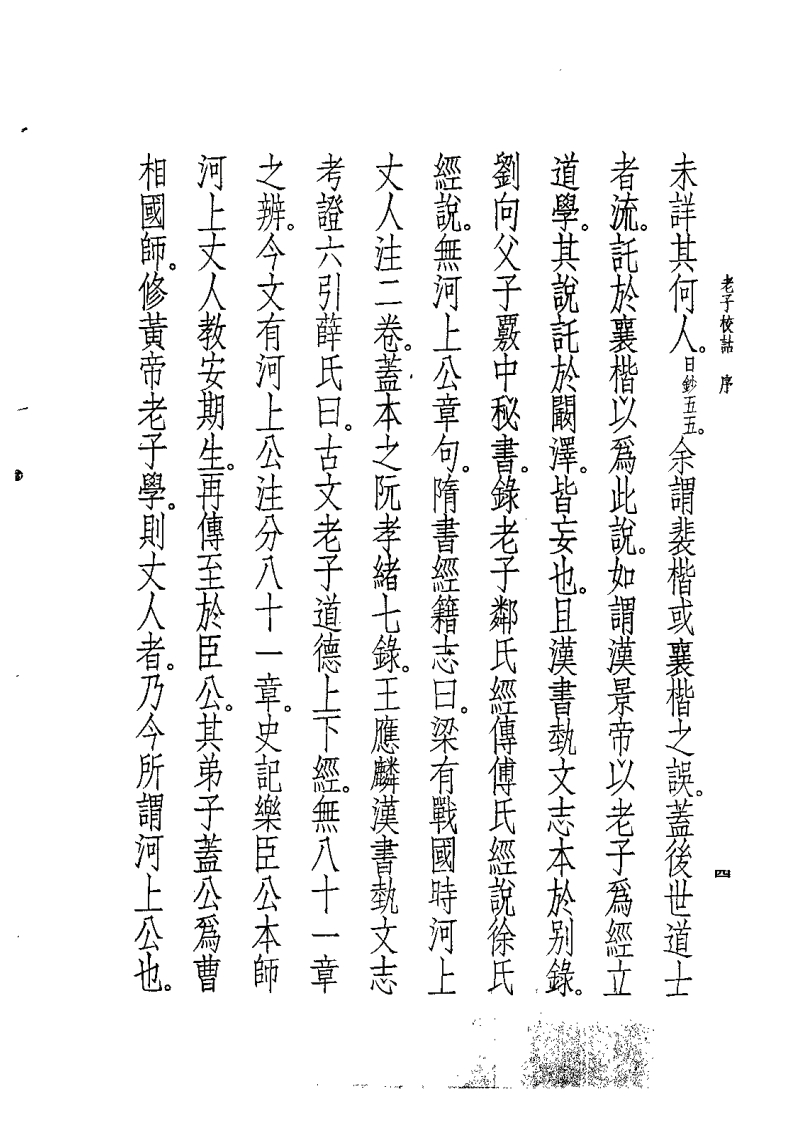 老子校詁　序
四
未詳其何人。日鈔五五。余謂裴楷或襄楷之誤。蓋後世道士
者流。託於襄楷以爲此說。如謂漢景帝以老子爲經立
道學。其說託於闞澤。皆妄也。且漢書埶文志本於别錄。
劉向父子覈中秘書。錄老子鄰氏經傳傅氏經說徐氏
經說。無河上公章句。隋書經籍志曰。梁有戰國時河上
丈人注二卷。蓋本之阮孝緒七錄。王應麟漢書埶文志
考證六引薛氏曰。古文老子道德上下經。無八十一章
之辨。今文有河上公注分八十一章。史記樂臣公本師
河上丈人教安期生。再傳至於臣公。其弟子蓋公爲曹
相國師。修黃帝老子學。則丈人者。乃今所謂河上公也。